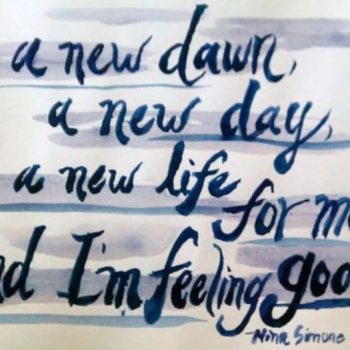 a new dawn,
a new day,
a new life
for m
nd I'm feeling goo
Nina Simone